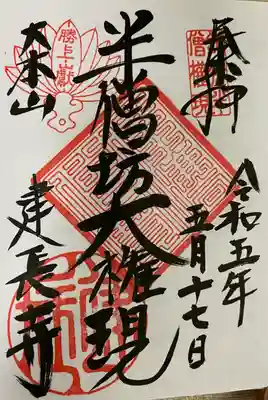 奉拝
令和五年
五月十七日
半僧坊大権現
勝上嶽
大本山
建長寺